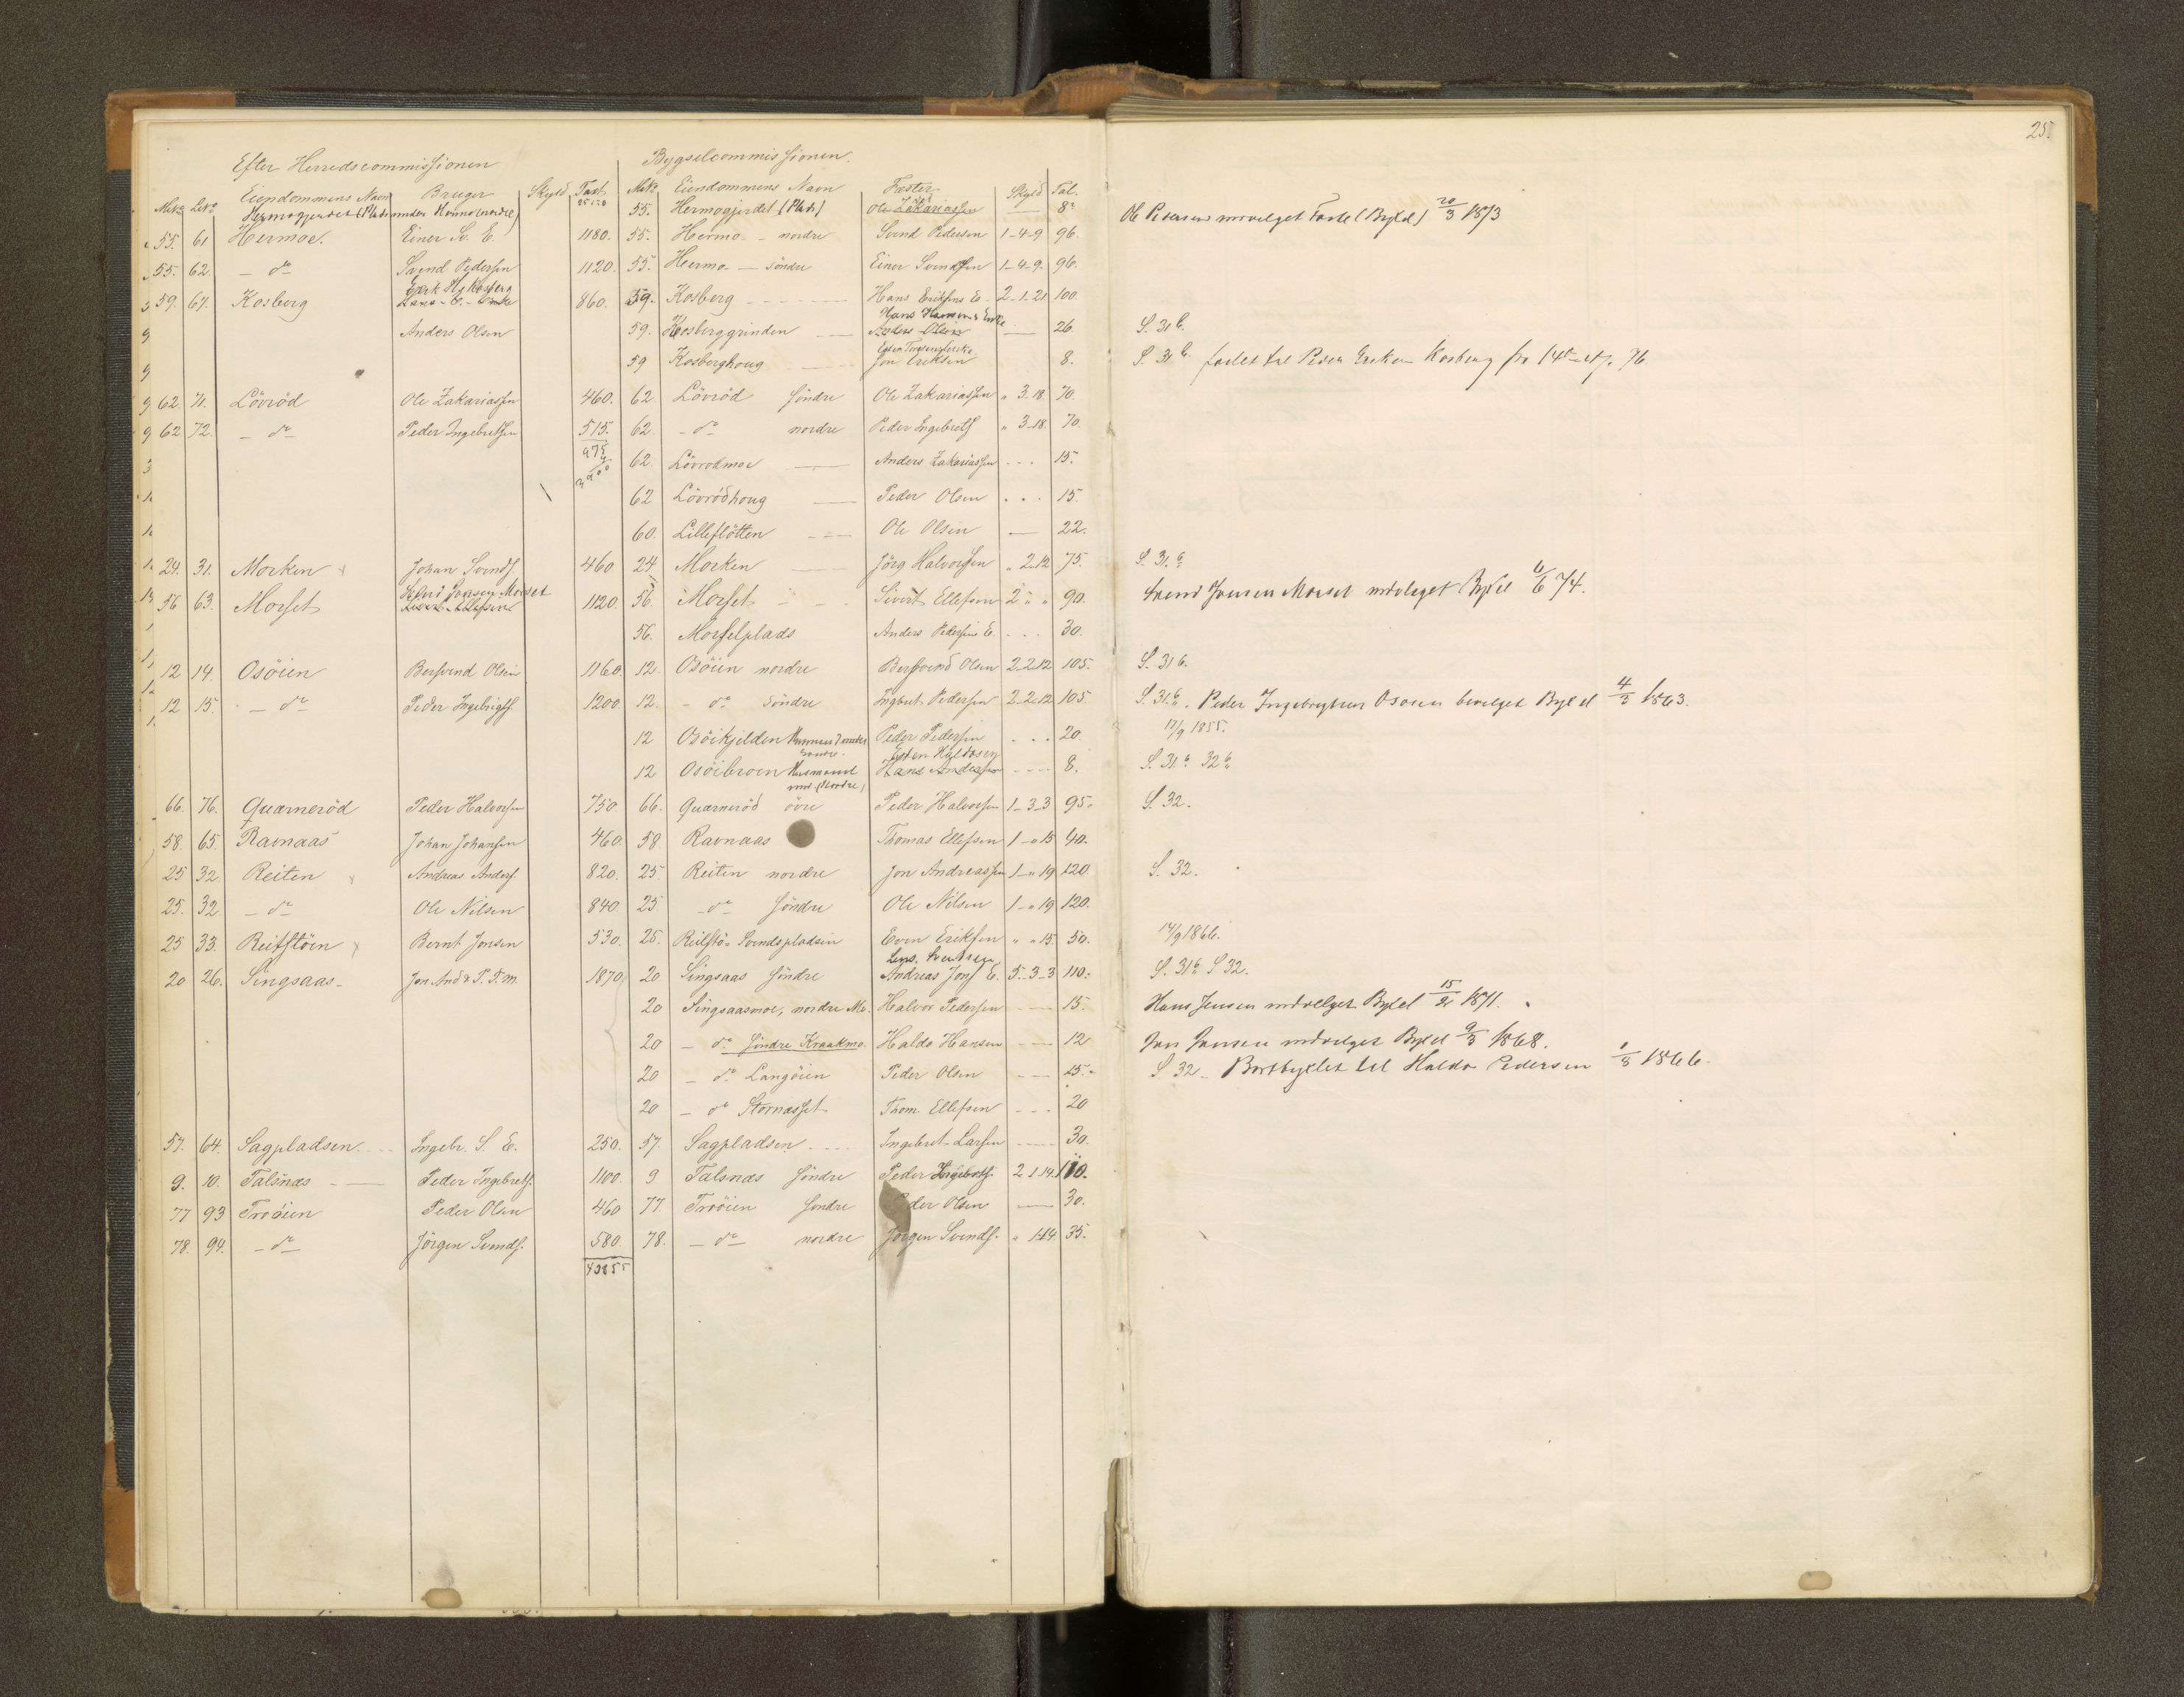 25
Efter Herredscommissionen Bygselcommissionen
Mtr. Lb. Eiendommens Navn Bruger Skyld Taxt Mtr. Eiendommens Navn Fæster Skyld Tal.
Hermogjerdet (Plads under Hermo nordre) 55. Hermogjerdet (Plads) Ole Zakariassen — 8 Ole Pedersen Fæstel (Bygsel) 20/3 1873
55. 61 Hermoe. Einer Sv. E. 1180. 55. Hermo - nordre Svend Pedersen 1-4-9 96.
55. 62. — do — Svend Pedersen 1120. 55. Hermo — söndre Einer Svendsen 1-4-9. 96.
59. 67. Kosberg Kosberg 860. 59. Kosberg Hans Eriksens E. 2-1-21 100.
Anders Olsen 59. Kosberggrinden Hans Hansens Enke Anders Olsen — 26 S. 31 b.
59 Kosberghoug Jon Eriksen 8. S. 31 b. fæstet til Peder Ericksen Kosberg fra 14 76
62. 71. Lövröd Ole Zakariassen 460. 62 Lövröd söndre Ole Zakariassen " 3. 18. 70.
62 72. — do — Peder Ingebretsen 515. 62. — do — nordre Peder Ingebretss " 3-18. 70.
975 62. Lövrodmoe — Anders Zakariassen - - - 15.
62 Lövrödhoug — Peder Olsen . . . 15.
60. Lilleflötten - - - Ole Olsen — 22.
24. 31. Morken Johan Svends. 460 24 Morken — Jörg Halvorsen " 2-12 75. S. 31. b
56 63. Morset Jonsen Morset 1120. 56. Morset Sivert Ellefsen 2 " " 90. Svend Jonsen Morset Bygsel 6/6 74.
56. Morsetplads Anders Pedersens E. . . . 30.
12 14. Osöien Bersvend Olsen 1160. 12. Osöien nordre Bersvend Olsen 2-2-12 105. S. 31 b.
12 15. — do — Peder Ingebrigts. 1200. 12. — do söndre Ingbret Pedersen 2-2-12 105. S. 31. b. Peder Ingebrigtsen Osøien bevilget Bygsel 4/3 1863.
12 Osöikjelden söndre Peder Pedersen . . . 20. 17/9 1855.
12 Osöibroen Husmand ved (Nordre) Esten Haldosen Hans Andersen - - - 8. S. 31. b. 32 b.
66. 76. Quærneröd Peder Halvorsen 750 66. Quærneröd övre Peder Halvorsen 1-3-3 95. S. 32.
58. 65. Ravnaas Johan Johansen 460. 58. Ravnaas Thomas Ellefsen 1-"15 40.
25 32. Reiten Andreas Anders. 820. 25. Reiten nordre Jon Andreassen 1-"19 120. S. 32.
25. 32. — do — Ole Nilsen 840. 25 — do — söndre Ole Nilsen 1-"19 120.
25 33. Reitstöen Bernt Jonsen 530. 25. Reitstö. Svendspladsen Even Eriksen " "15. 50. 17/9 1866.
20 26. Singsaas - Jon And. & P. T. m. 1870 20 Singsaas söndre Andreas Jons E. 5-3-3 110. S. 31 b. S 32.
20 Singsaasmoe, nordre Mo. Halvor Pedersen — 15. Hans Jensen Bygsel 15/2 1871.
20 — do söndre Kraakmo. Haldo Hansen — 12 Jon Jonsen Bygsel 9/3 1868.
20 — do Langöien Peder Olsen — 15. S 32. Bortbyxlet til Haldo Pedersen 1/3 1866.
20 — do Stornæsset Thom. Ellefsen - - - 20
57. 64. Sagpladsen Ingebr. S. E. 250. 57. Sagpladsen Ingebret Larsen — 30.
9. 10. Talsnæs — Peder Ingebrets. 1100. 9 Talsnæs söndre Peder Ingebrets. 2 1. 14. 110.
77 93 Troöien Peder Olsen 460 77. Troöien söndre Peder Olsen — 30.
78. 94. — do — Jörgen Svends. 580. 78. — do — nordre Jörgen Svends. " 1-14 35.